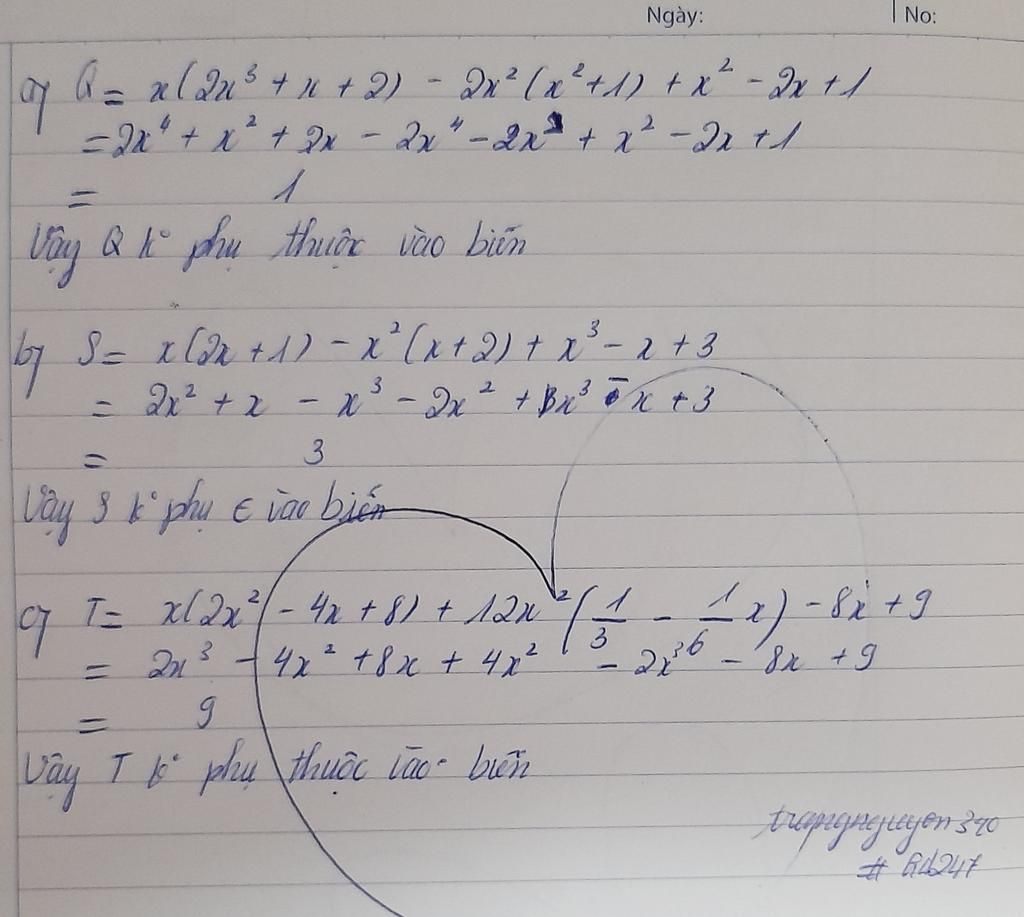 Ngày: No:
a) Q = x(2x³ + x + 2) - 2x²(x²+1) + x² - 2x + 1
= 2x⁴ + x² + 2x - 2x⁴ - 2x² + x² - 2x + 1
= 1
Vậy Q k° phụ thuộc vào biến
b) S = x(2x+1) - x²(x+2) + x³ - x + 3
= 2x² + x - x³ - 2x² + x³ - x + 3
= 3
Vậy S k° phụ ∈ vào biến
c) T = x(2x² - 4x + 8) + 12x²(1/3 - 1/6 x) - 8x + 9
= 2x³ - 4x² + 8x + 4x² - 2x³ - 8x + 9
= 9
Vậy T k° phụ thuộc vào biến